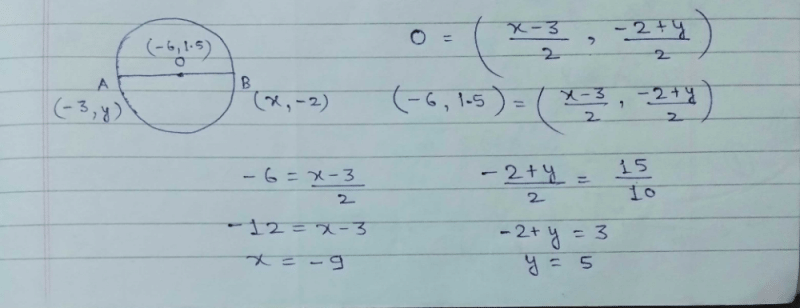 (-6, 1.5)
O
A
B
(-3, y)
(x, -2)
O = ( x-3/2 , -2+y/2 )
(-6, 1.5) = ( x-3/2 , -2+y/2 )
-6 = x-3/2
-12 = x-3
x = -9
-2+y/2 = 15/10
-2+y = 3
y = 5